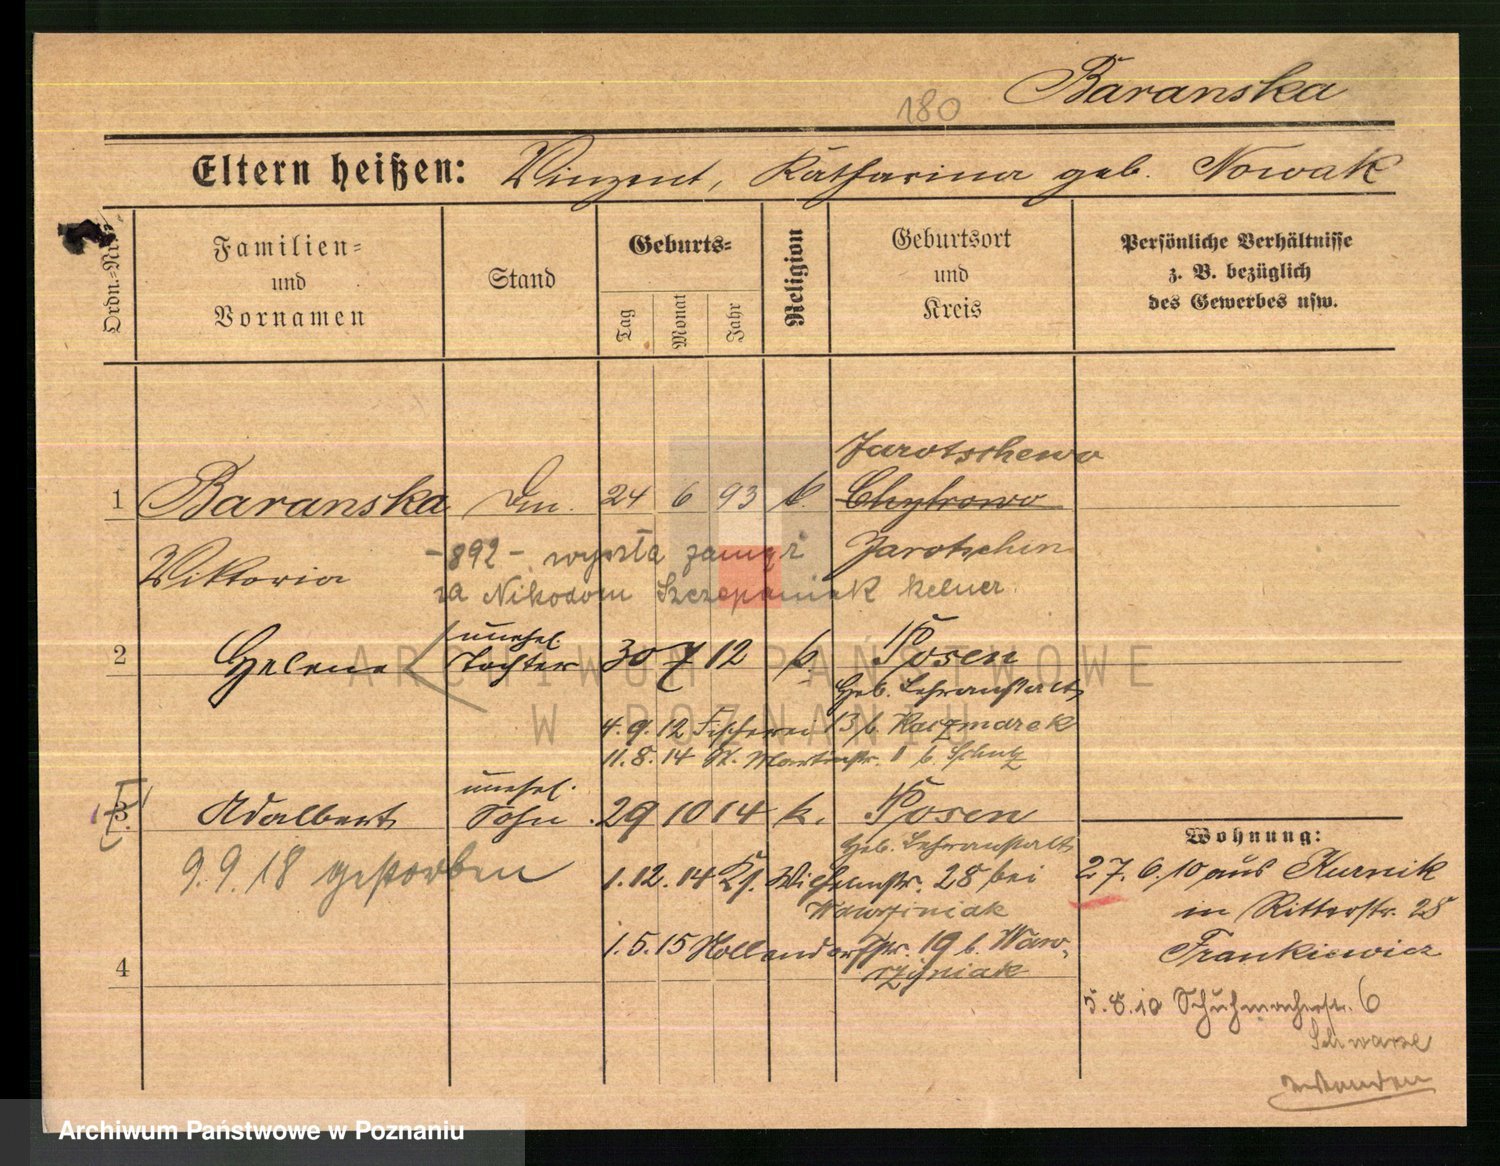 Baranska
180
Eltern heißen: Vinzent, Katharina geb. Nowak
Ordn.-Nr.
Familien-
und
Vornamen
Stand
Geburts-
Tag
Monat
Jahr
Religion
Geburtsort
und
Kreis
Persönliche Verhältnisse
z. B. bezüglich
des Gewerbes usw.
Jarotschewo
1 Baranska 24 6 93 k. Chytrowo
Viktoria
Jarotschin
-892- wyszła zamąż
za Nikodom Szczepaniak kelner.
unehel.
2 Helene Tochter 30 7 12 k. Posen
Geb. Lehranstalt
4.9.12 Fischerei 13 b. Kaczmarek
11.8.14 St. Martinstr. b. Schulz
unehel.
3 Adalbert Sohn 29 10 14 k. Posen
Geb. Lehranstalt
9.9.18 gestorben
1.12.14 Wilhelmstr. 28 bei
Wawrziniak
1.5.15 Hollandorffstr. 19 b. Waw-
rzyniak
4
Wohnung:
27.6.10 aus Kurnik
in Ritterstr. 28
Frankiewicz
5.8.10 Schuhmacherstr. 6
Schwarze
ARCHIWUM PAŃSTWOWE
W POZNANIU
Archiwum Państwowe w Poznaniu